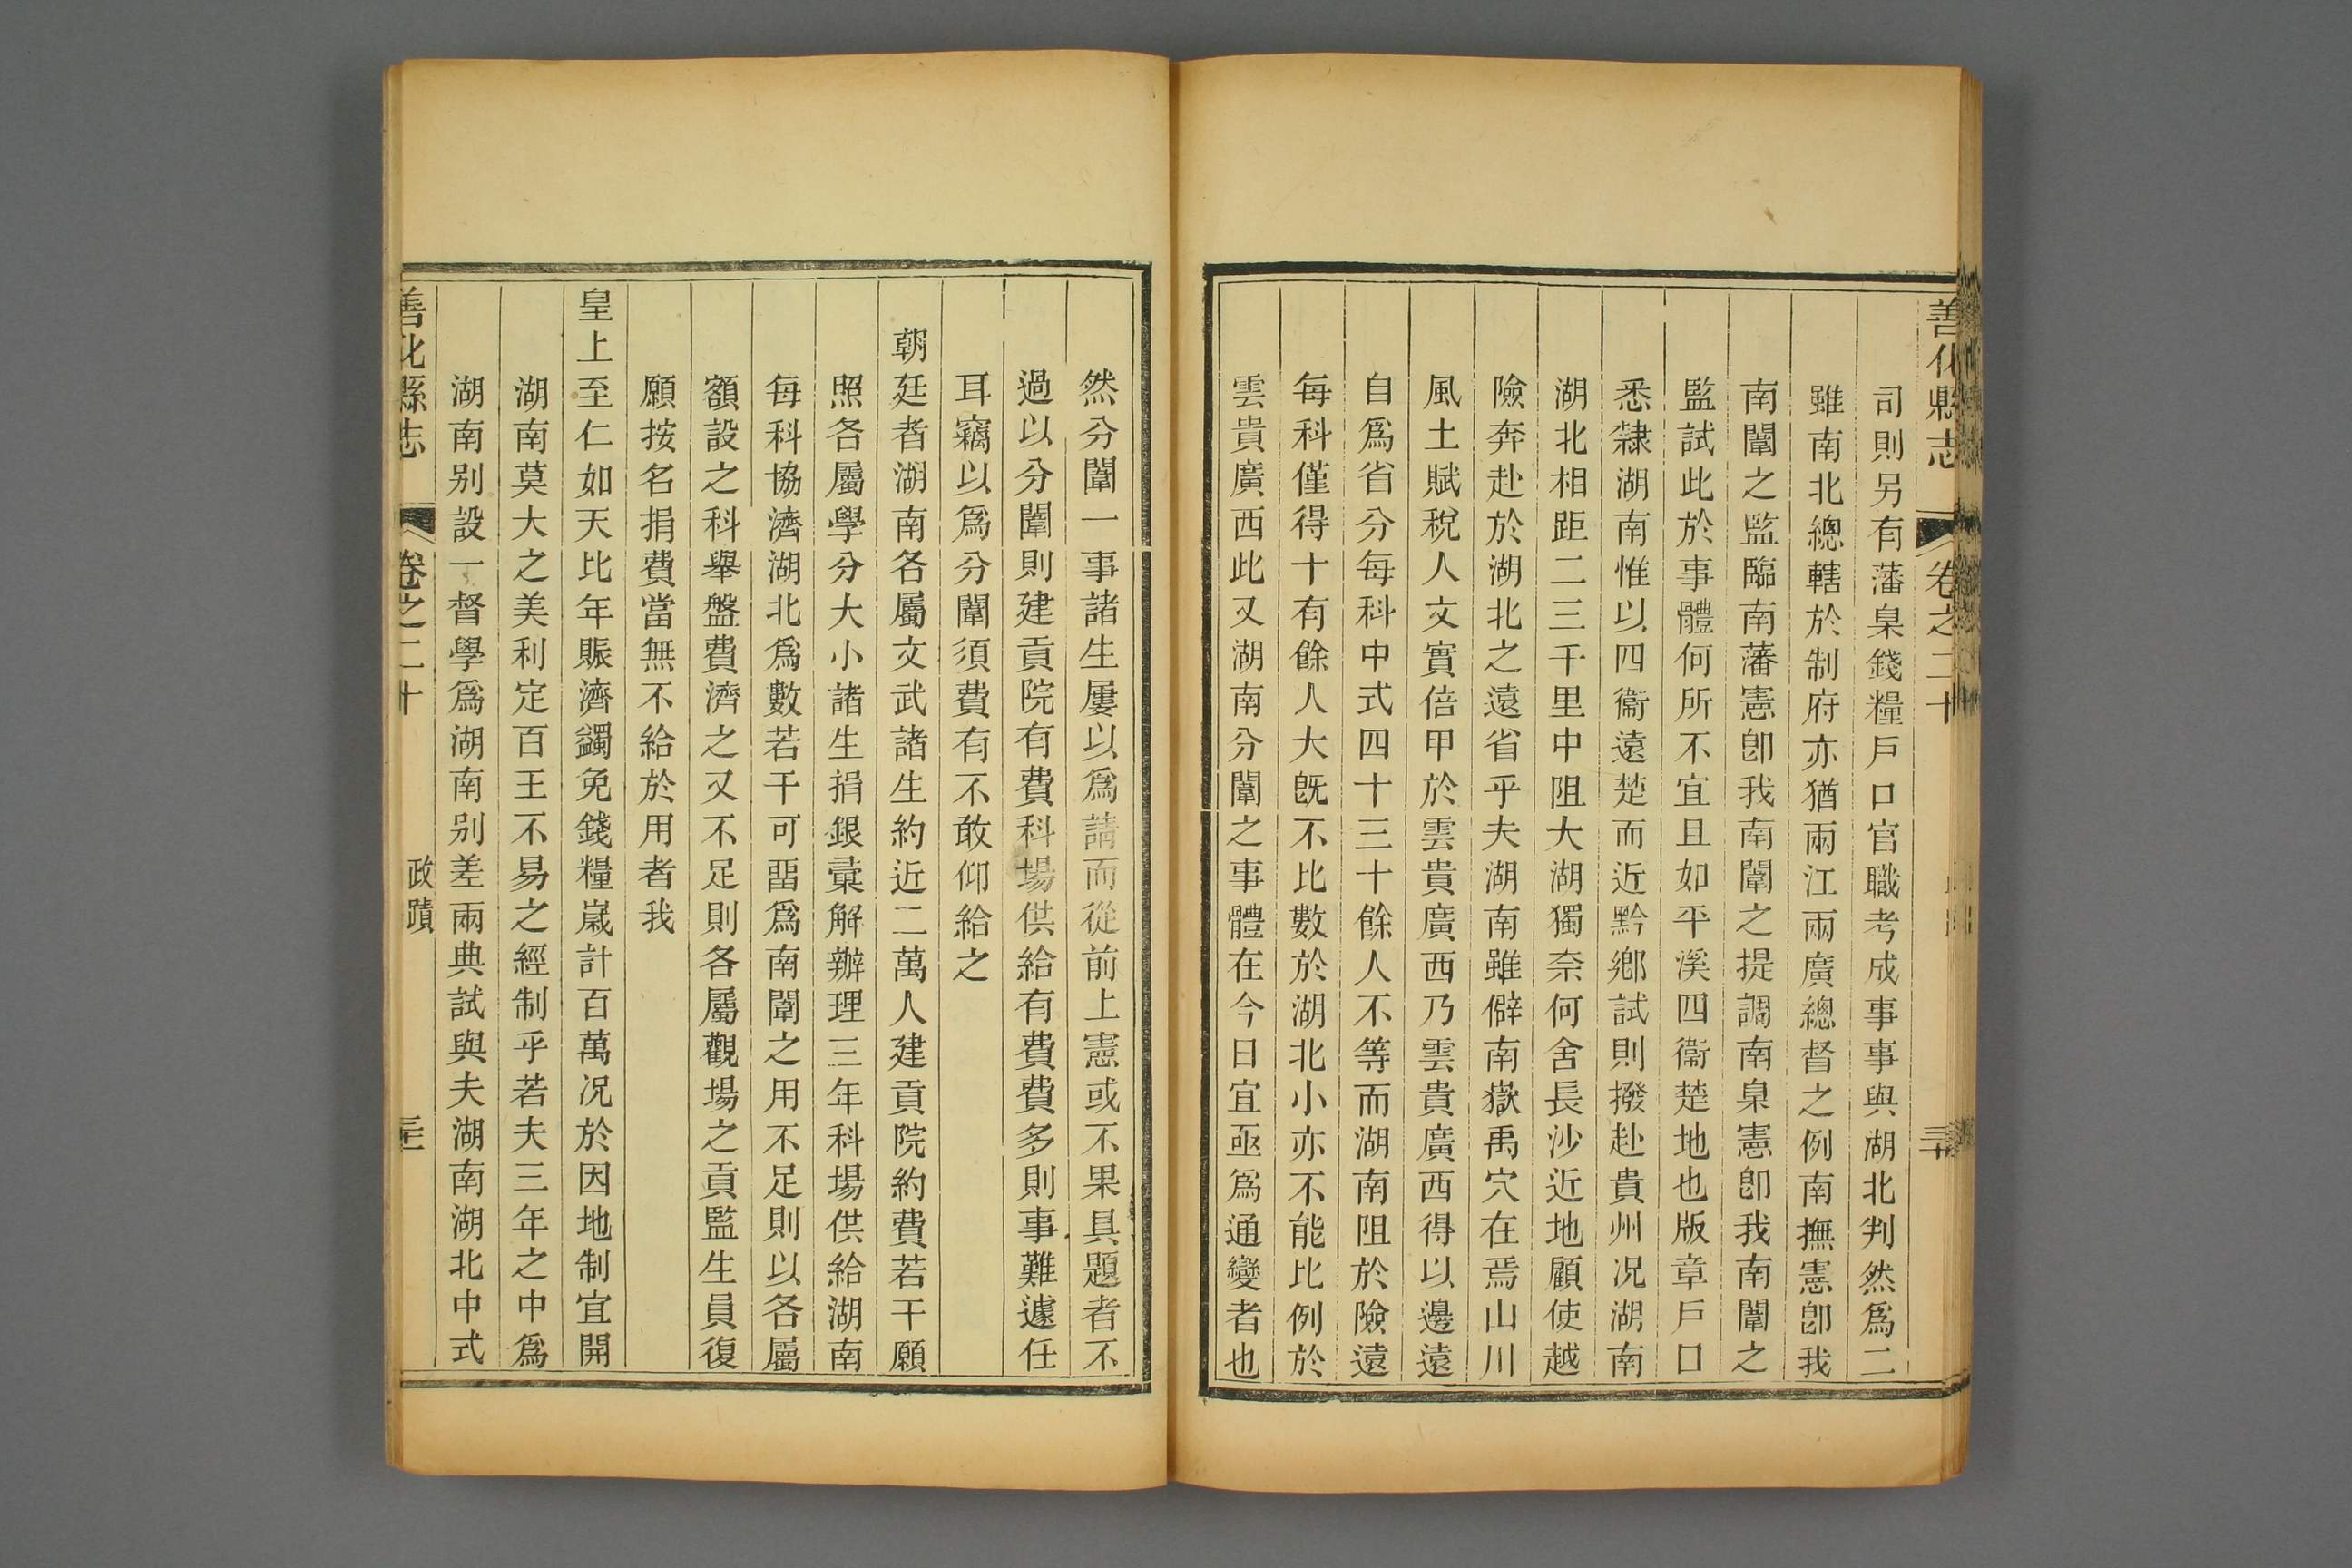 善化縣志 卷之二十 三十
司則另有藩臬錢糧戶口官職考成事事與湖北判然爲二
雖南北總轄於制府亦猶兩江兩廣總督之例南撫憲卽我
南闈之監臨南藩憲卽我南闈之提調南臬憲卽我南闈之
監試此於事體何所不宜且如平溪四衞楚地也版章戶口
悉隸湖南惟以四衞遠楚而近黔鄕試則撥赴貴州况湖南
湖北相距二三千里中阻大湖獨奈何舍長沙近地顧使越
險奔赴於湖北之遠省乎夫湖南雖僻南嶽禹穴在焉山川
風土賦稅人文實倍甲於雲貴廣西乃雲貴廣西得以邊遠
自爲省分每科中式四十三十餘人不等而湖南阻於險遠
每科僅得十有餘人大旣不比數於湖北小亦不能比例於
雲貴廣西此又湖南分闈之事體在今日宜亟爲通變者也
然分闈一事諸生屢以爲請而從前上憲或不果具題者不
過以分闈則建貢院有費科場供給有費費多則事難遽任
耳竊以爲分闈須費有不敢仰給之
朝廷者湖南各屬文武諸生約近二萬人建貢院約費若干願
照各屬學分大小諸生捐銀彚解辦理三年科場供給湖南
每科協濟湖北爲數若干可畱爲南闈之用不足則以各屬
額設之科舉盤費濟之又不足則各屬觀場之貢監生員復
願按名捐費當無不給於用者我
皇上至仁如天比年賑濟蠲免錢糧嵗計百萬况於因地制宜開
湖南莫大之美利定百王不易之經制乎若夫三年之中爲
湖南别設一督學爲湖南别差兩典試與夫湖南湖北中式
善化縣志 卷之二十 政蹟